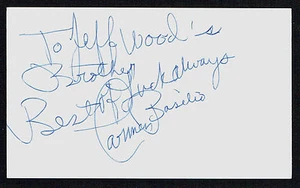 To Jeff Wood's
Brother
Best of Luck always
Carmen Basilio